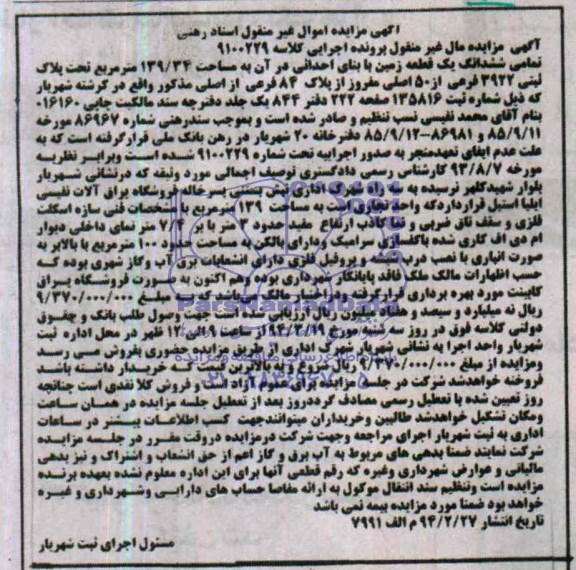 آگهی مزایده اموال غیر منقول اسناد رهنی
آگهی مزایده مال غیر منقول پرونده اجرایی کلاسه ۹۱۰۰۲۲۹
تمامی ششدانگ یک قطعه زمین با بنای احداثی در آن به مساحت ۱۳۹/۳۴ مترمربع تحت پلاک
ثبتی ۳۹۲۲ فرعی از ۵۰ اصلی مفروز از پلاک ۸۴ فرعی از اصلی مذکور واقع در کرشته شهریار
که ذیل شماره ثبت ۱۳۵۸۱۶ صفحه ۲۲۲ دفتر ۸۴۴ یک جلد دفترچه سند مالکیت چاپی ۰۱۶۱۶۰
بنام آقای محمد نفیسی نسب تنظیم و صادر شده است و بموجب سندرهنی شماره ۸۶۹۶۷ مورخه
۸۵/۹/۱۱ و ۸۶۹۸۱-۸۵/۹/۱۲ دفترخانه ۲۰ شهریار در رهن بانک ملی قرارگرفته است که به
علت عدم ایفای تعهدمنجر به صدور اجراییه تحت شماره ۹۱۰۰۲۲۹ شده است وبرابر نظریه
مورخه ۹۳/۸/۷ کارشناس رسمی دادگستری توصیف اجمالی مورد وثیقه که درنشانی شهریار
بلوار شهیدکلهر نرسیده به سه راه شهرک اداری نبش بسرخاله فروشگاه یراق آلات نفیسی
ایلیا استیل قراردارد که واحد تجاری است به مساحت ۱۳۹ مترمربع با مشخصات فنی سازه اسکلت
فلزی و سقف تاق ضربی و نما کاذب ارتفاع مفید حدود ۳ متر با بر ۷/۴ متر نمای داخلی دیوار
ام دی اف کاری شده باکفسازی سرامیک ودارای بالکن به مساحت حدود ۱۰۰ مترمربع با بالابر به
صورت انباری با نصب درب شیشه و پروفیل فلزی دارای انشعابات برق آب وگاز شهری بوده که
حسب اظهارات مالک ملک فاقد پایانکار شهرداری بوده وهم اکنون به صورت فروشگاه یراق
کابینت مورد بهره برداری قرارگرفته ودر اختیار مالک می‌باشد که به مبلغ ۹/۳۷۰/۰۰۰/۰۰۰
ریال نه میلیارد و سیصد و هفتاد میلیون ریال ارزیابی شده است جهت وصول طلب بانک و حقوق
دولتی کلاسه فوق در روز سه شنبه مورخ ۹۴/۳/۱۹ از ساعت ۹ الی ۱۲ ظهر در محل اداره ثبت
شهریار واحد اجرا به نشانی شهریار شهرک اداری از طریق مزایده حضوری بفروش می رسد
ومزایده از مبلغ ۹/۳۷۰/۰۰۰/۰۰۰ ریال شروع و به بالاترین قیمت که خریدار داشته باشد
فروخته خواهدشد شرکت در جلسه مزایده برای عموم آزاد است و فروش کلا نقدی است چنانچه
روز تعیین شده با تعطیل رسمی مصادف گردد روز بعد از تعطیل جلسه مزایده در همان ساعت
ومکان تشکیل خواهدشد طالبین وخریداران میتوانندجهت کسب اطلاعات بیشتر در ساعات
اداری به ثبت شهریار اجرای مراجعه وجهت شرکت درمزایده دروقت مقرر در جلسه مزایده
شرکت نمایند ضمنا بدهی های مربوط به آب برق و گاز اعم از حق انشعاب و اشتراک و نیز بدهی
مالیاتی و عوارض شهرداری وغیره که رقم قطعی آنها برای این اداره معلوم نشده بعهده برنده
مزایده است وتنظیم سند انتقال موکول به ارائه مفاصا حساب های دارایی وشهرداری و غیره
خواهد بود ضمنا مورد مزایده بیمه نمی باشد
تاریخ انتشار ۹۴/۲/۲۷ م الف ۷۹۹۱
مسئول اجرای ثبت شهریار